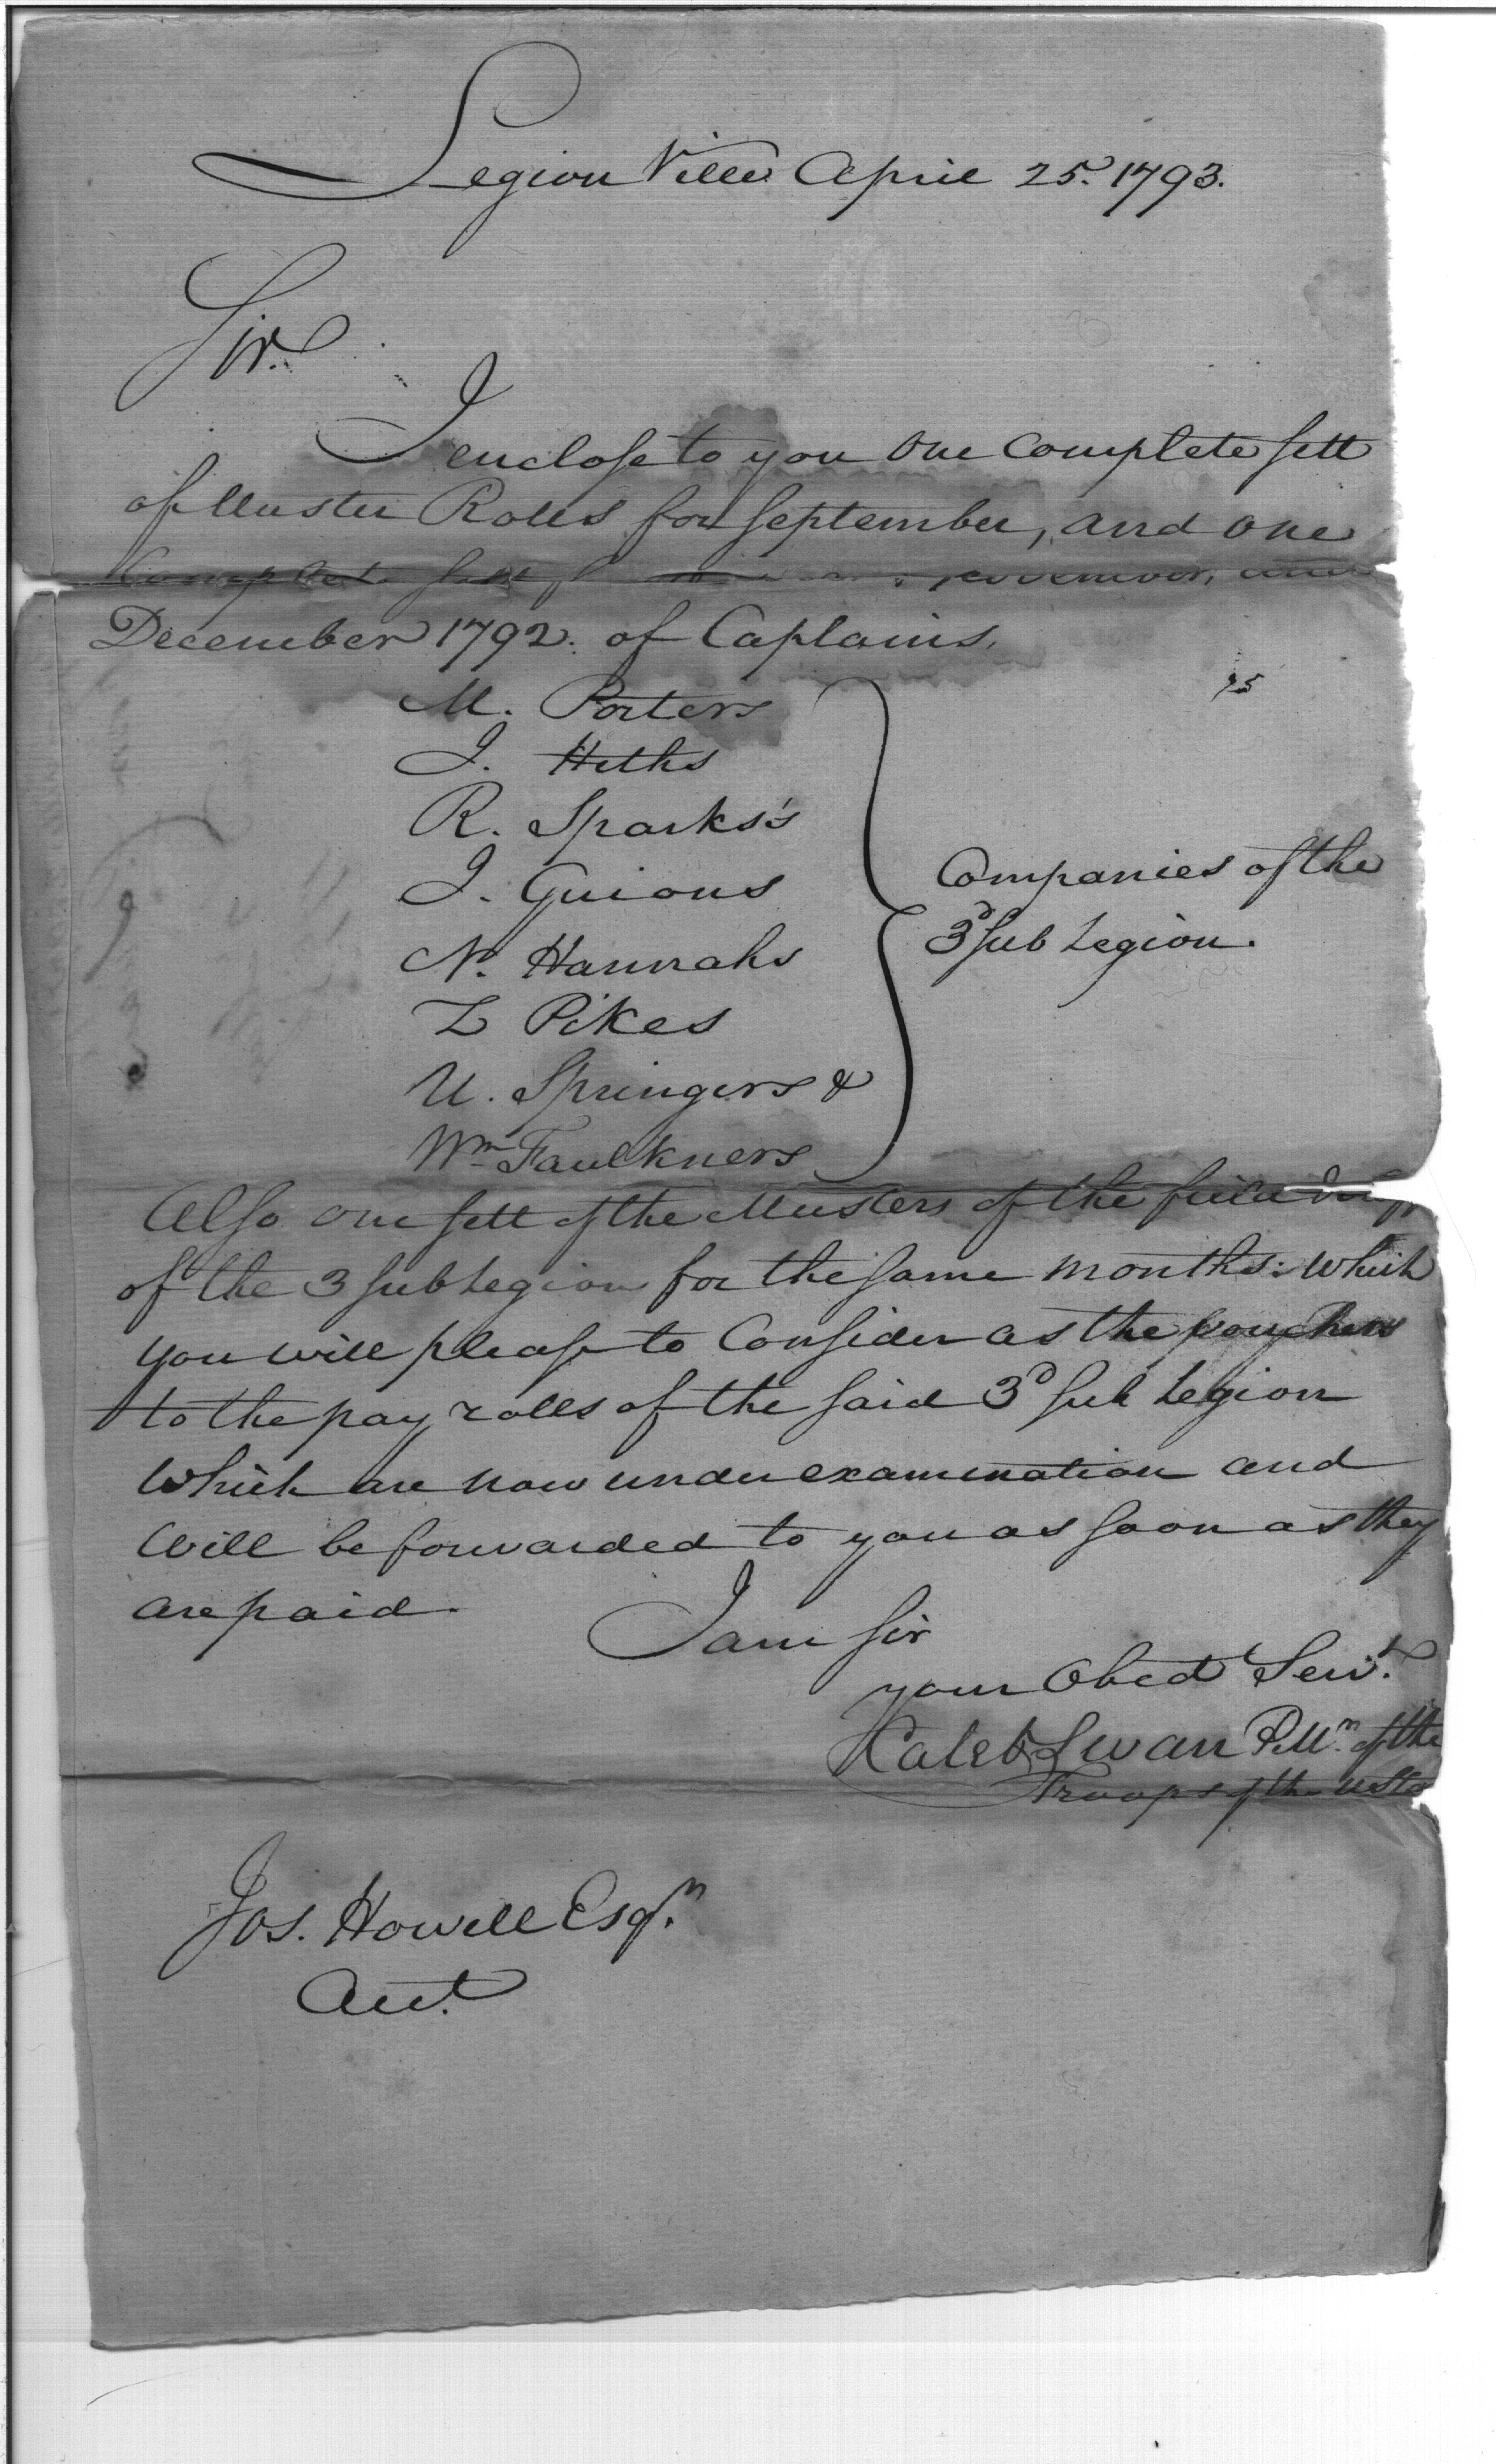 Legion Ville April 25. 1793.
Sir.
I enclose to you one Complete sett
of Muster Rolls for September, and one
Complete sett November, and
December 1792. of Captains,
M. Porters
J. Heths
R. Sparks's
I. Guions
N. Hannahs
Z Pikes
U. Springers &
Wm Faulkners
Companies of the
3d Sub Legion.
95
Also one sett of the Musters of the field
of the 3 sub Legion for the same months: which
you will please to Consider as the vouchers
to the pay rolls of the said 3d sub Legion
which are now under examination and
will be forwarded to you as soon as they
are paid.
I am sir
your Obed Servt.
Caleb Swan P.Mr. of the
Troops of the U Sta
Jos. Howell Esqr.
Act.